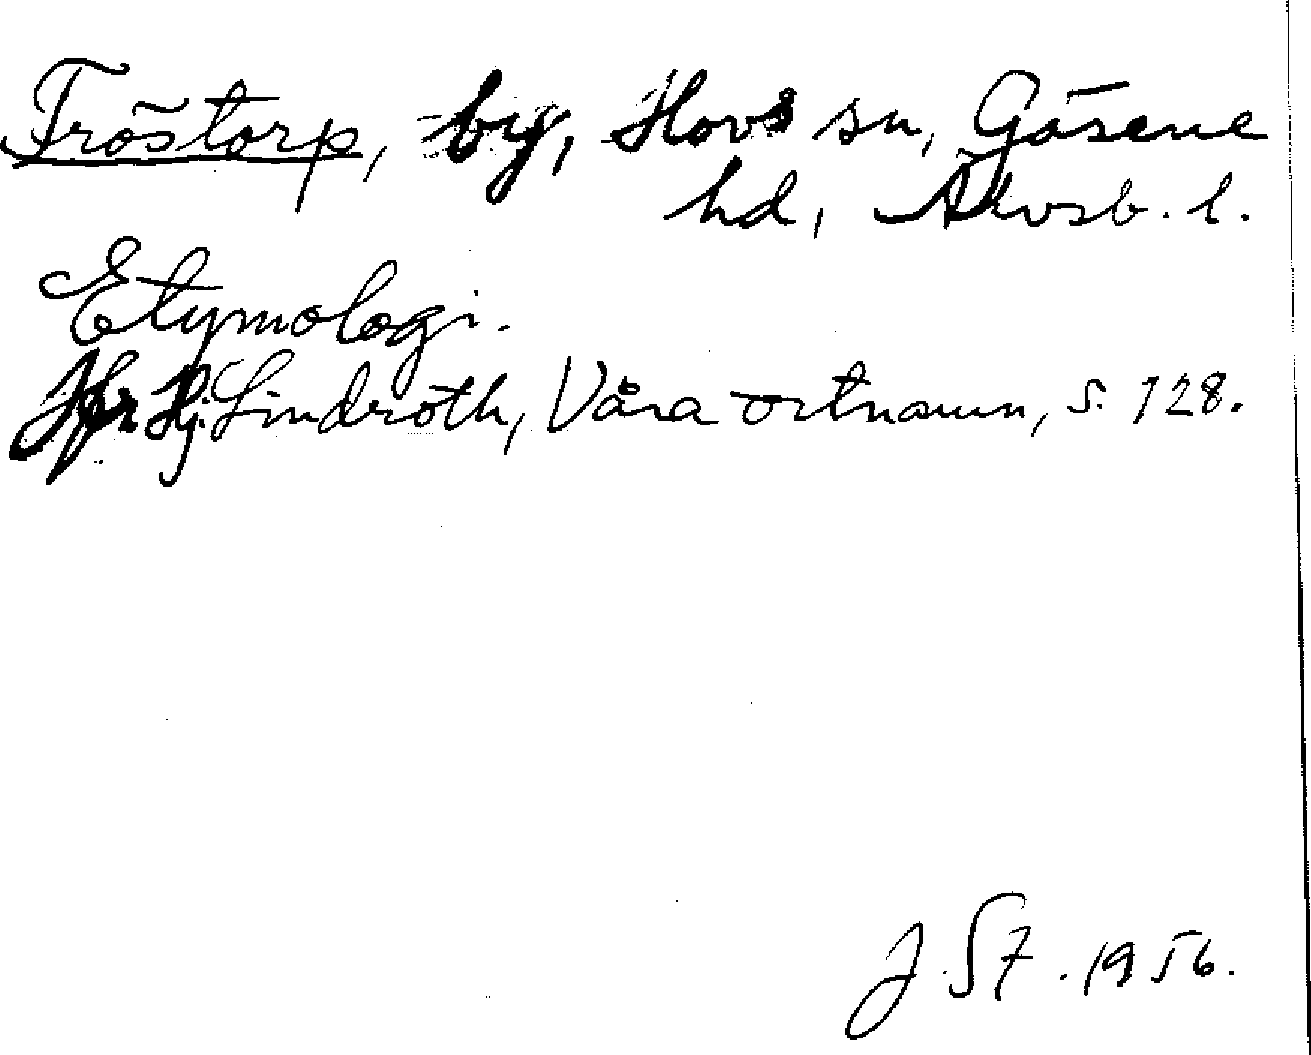 Fröstorp, by, Hovs sn, Gäsene
hd, Älvsb. l.
Etymologi.
Jfr Hj. Lindroth, Våra ortnamn, s. 128.
J. St. 1956.